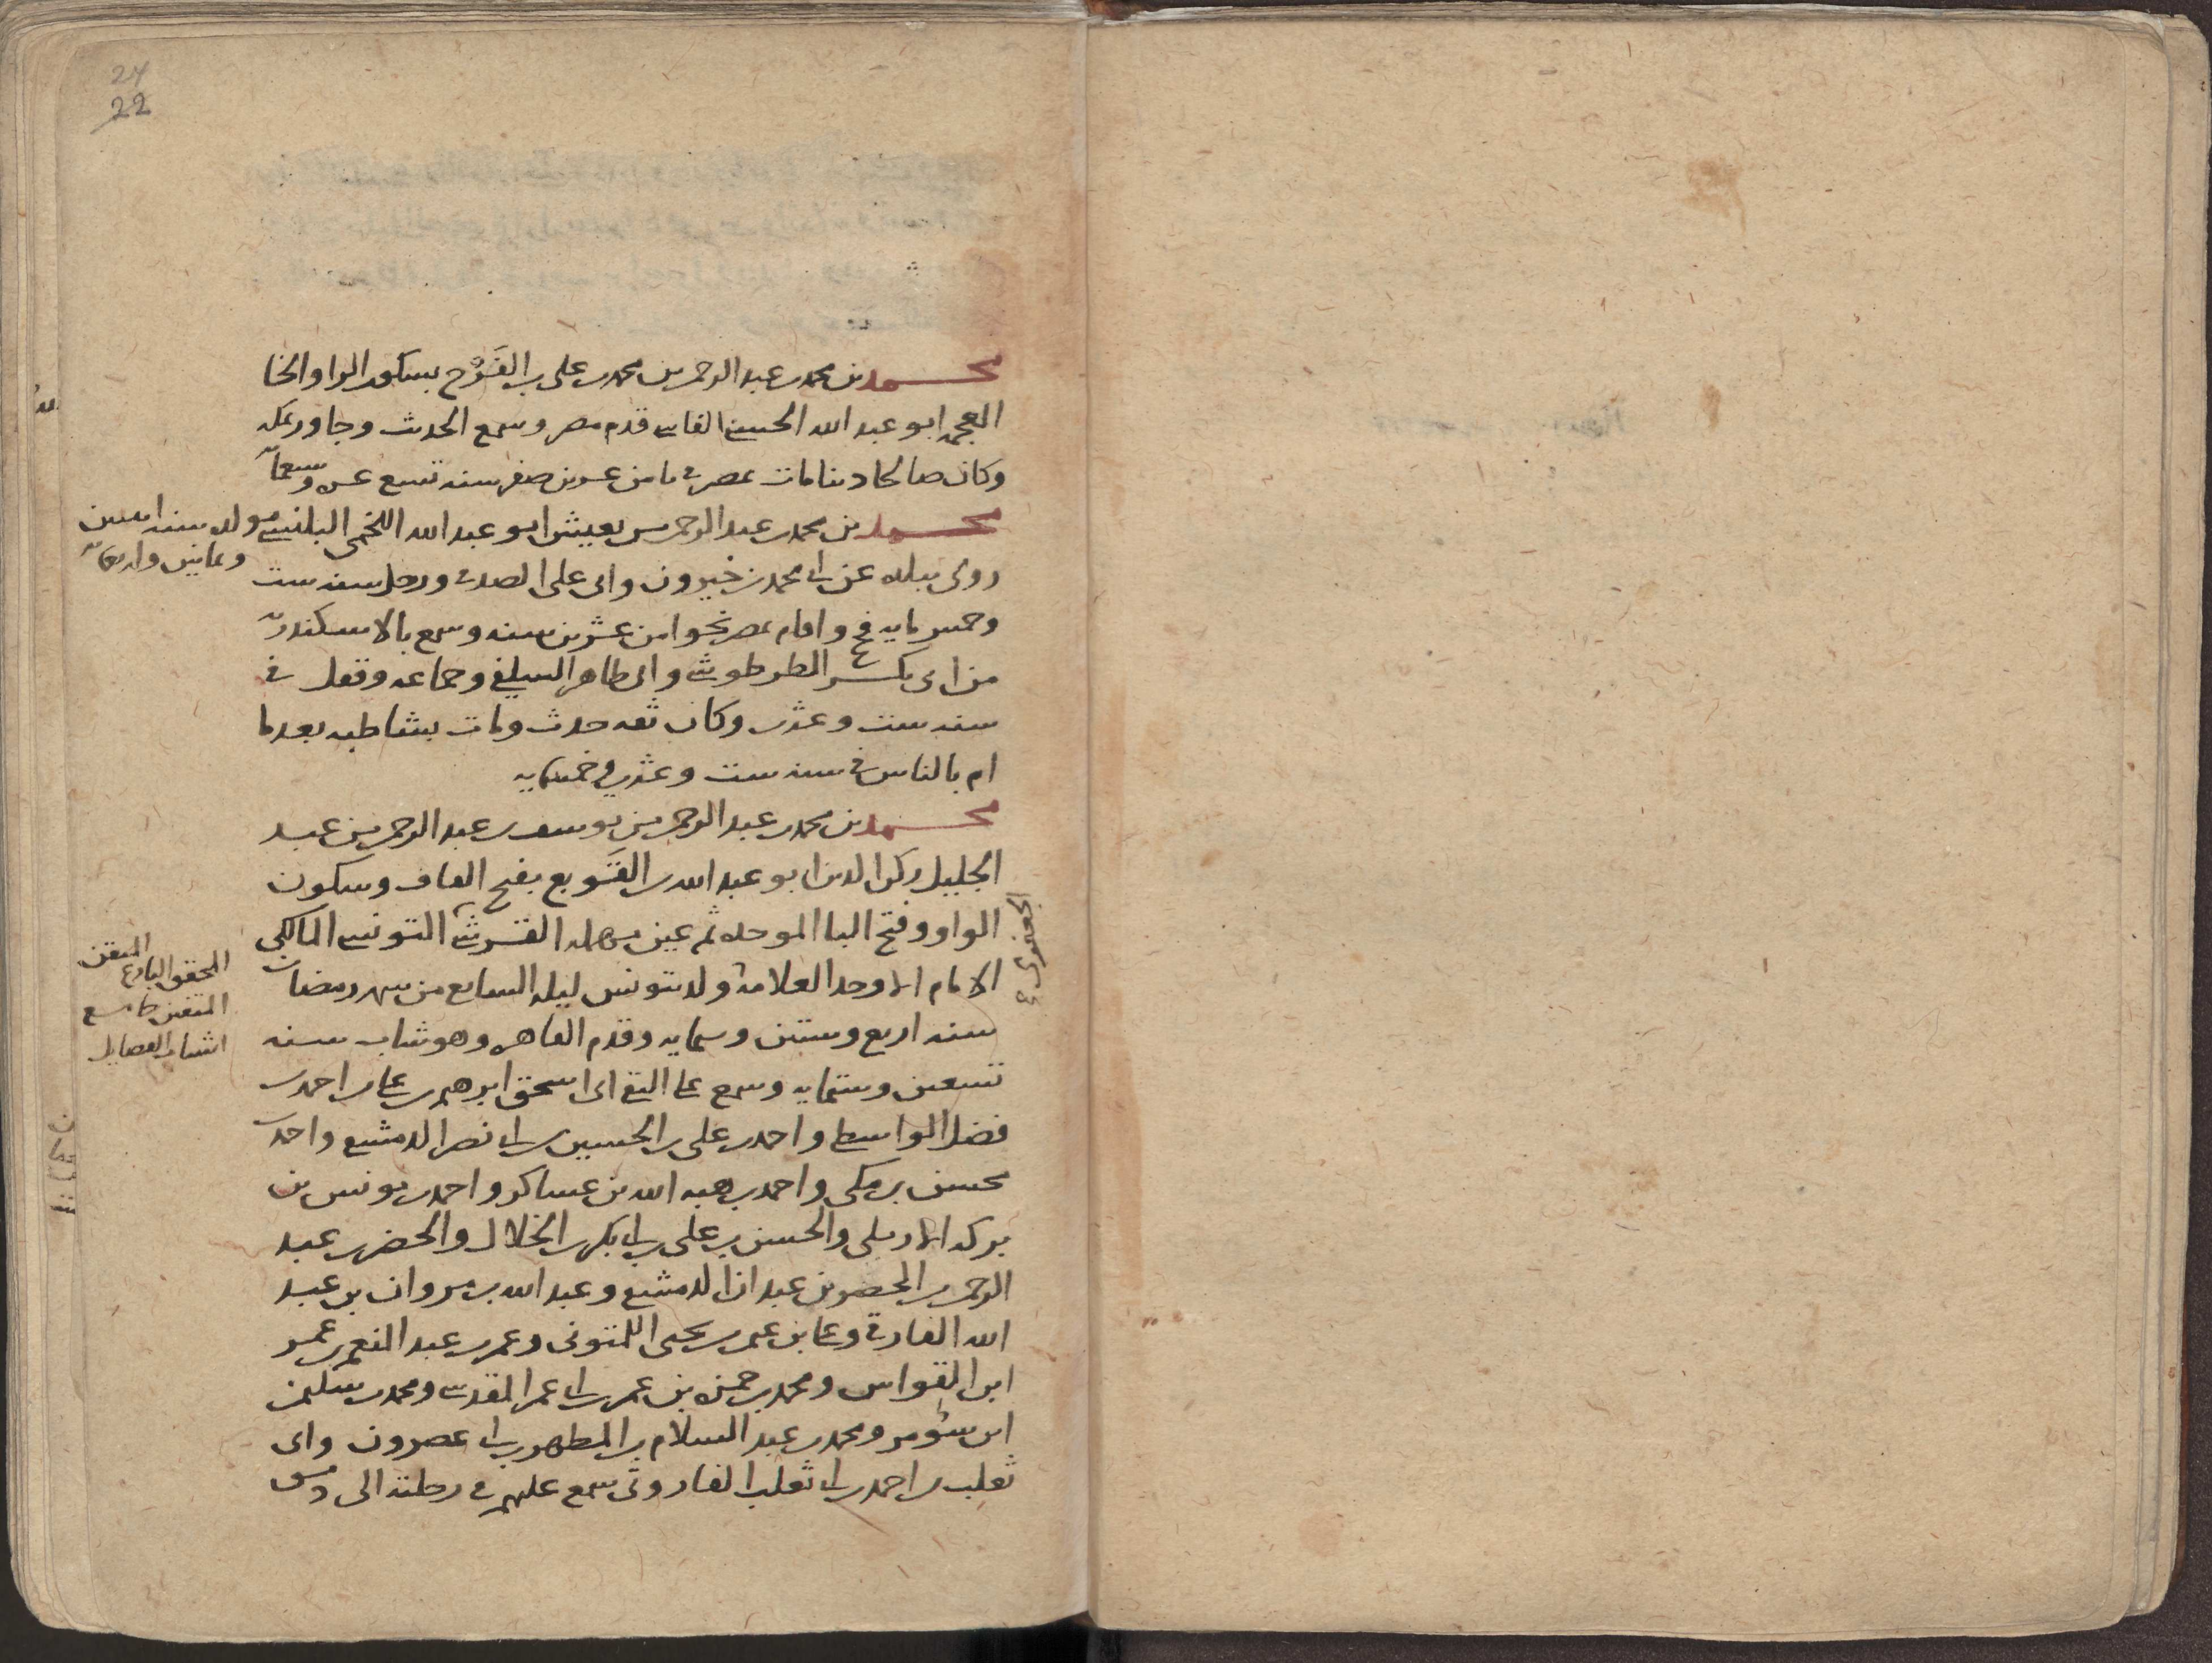 24
22
محمد بن محمد بن عبد الرحمن بن محمد بن علي بن الفَرْخ بسكون الرا والخا
المعجمه ابو عبد الله الحسنى الفاسى قدم مصر وسمع الحديث وجاور بمكه
وكان صالحا دينا مات بمصر فى ثامن عشرين صفر سنه تسع عشره وسبعمايه
محمد بن محمد بن عبد الرحمن بن يعيش ابو عبد الله اللخمى البلنسى مولده سنه اثنين
وثمانين واربعمايه
روى ببلده عن ابى محمد بن خيرون وابى على الصدفى ورحل سنه ست
وخمس مايه فحج واقام بمصر نحوا من عشرين سنه وسمع بالاسكندريه
من ابى بكر الطرطوشى وابى طاهر السلفى وجماعه وقفل فى
سنه ست وعشرين وكان ثقه حدث ومات بشاطبه بعدما
ام بالناس فى سنه ست وعشرين وخمسمايه
محمد بن محمد بن عبد الرحمن بن يوسف بن عبد الرحمن بن عبد
الجليل ركن الدين ابو عبد الله بن القَوبع بفتح القاف وسكون
الواو وفتح البا الموحده ثم عين مهمله القرشى التونسى المالكى
الجعفرى
الامام الاوحد العلامه ولد بتونس ليله السابع من شهر رمضان
المحقق البارع المتقن
المتفنن جامع
اشتات الفضايل
سنه اربع وستين وستمايه وقدم القاهره وهو شاب سنه
تسعين وستمايه وسمع على التقى ابى اسحق ابرهيم بن على بن احمد بن
فضل الواسطى واحمد بن على بن الحسين بن ابى نصر الدمشقى واحمد بن
محسن بن مكى واحمد بن هبه الله بن عساكر واحمد بن يونس بن
بركه الاربلى والحسن بن على بن ابى بكر بن الخلال والخضر بن عبد
الرحمن بن الخضر بن عبدان الدمشقى وعبد الله بن مروان بن عبد
الله الفارقى وعلى بن عمر بن يحيى اللمتونى وعمر بن عبد المنعم بن عمر
ابن القواس ومحمد بن حمزه بن عمر بن ابى عمر المقدسى ومحمد بن سليمن
ابن سومر ومحمد بن عبد السلام بن المطهر بن ابى عصرون وابى
ثعلب بن احمد بن ابى ثعلب الفاروثى سمع عليهم فى رحلته الى دمشق